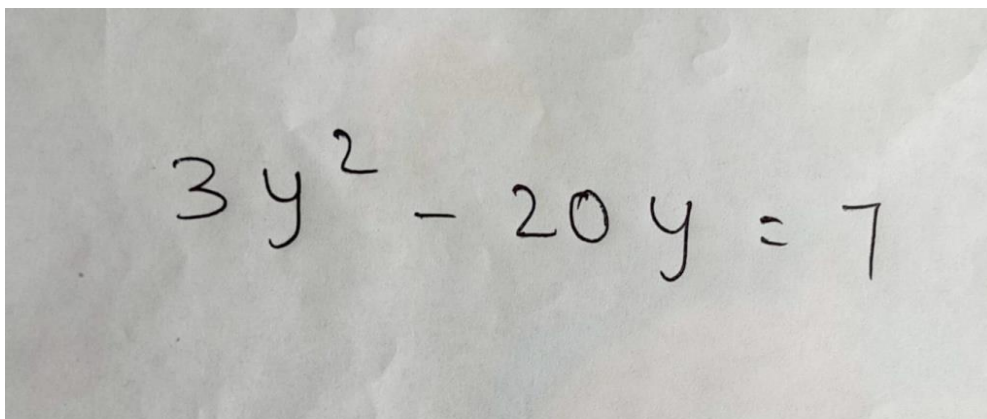 3y² - 20y = 7